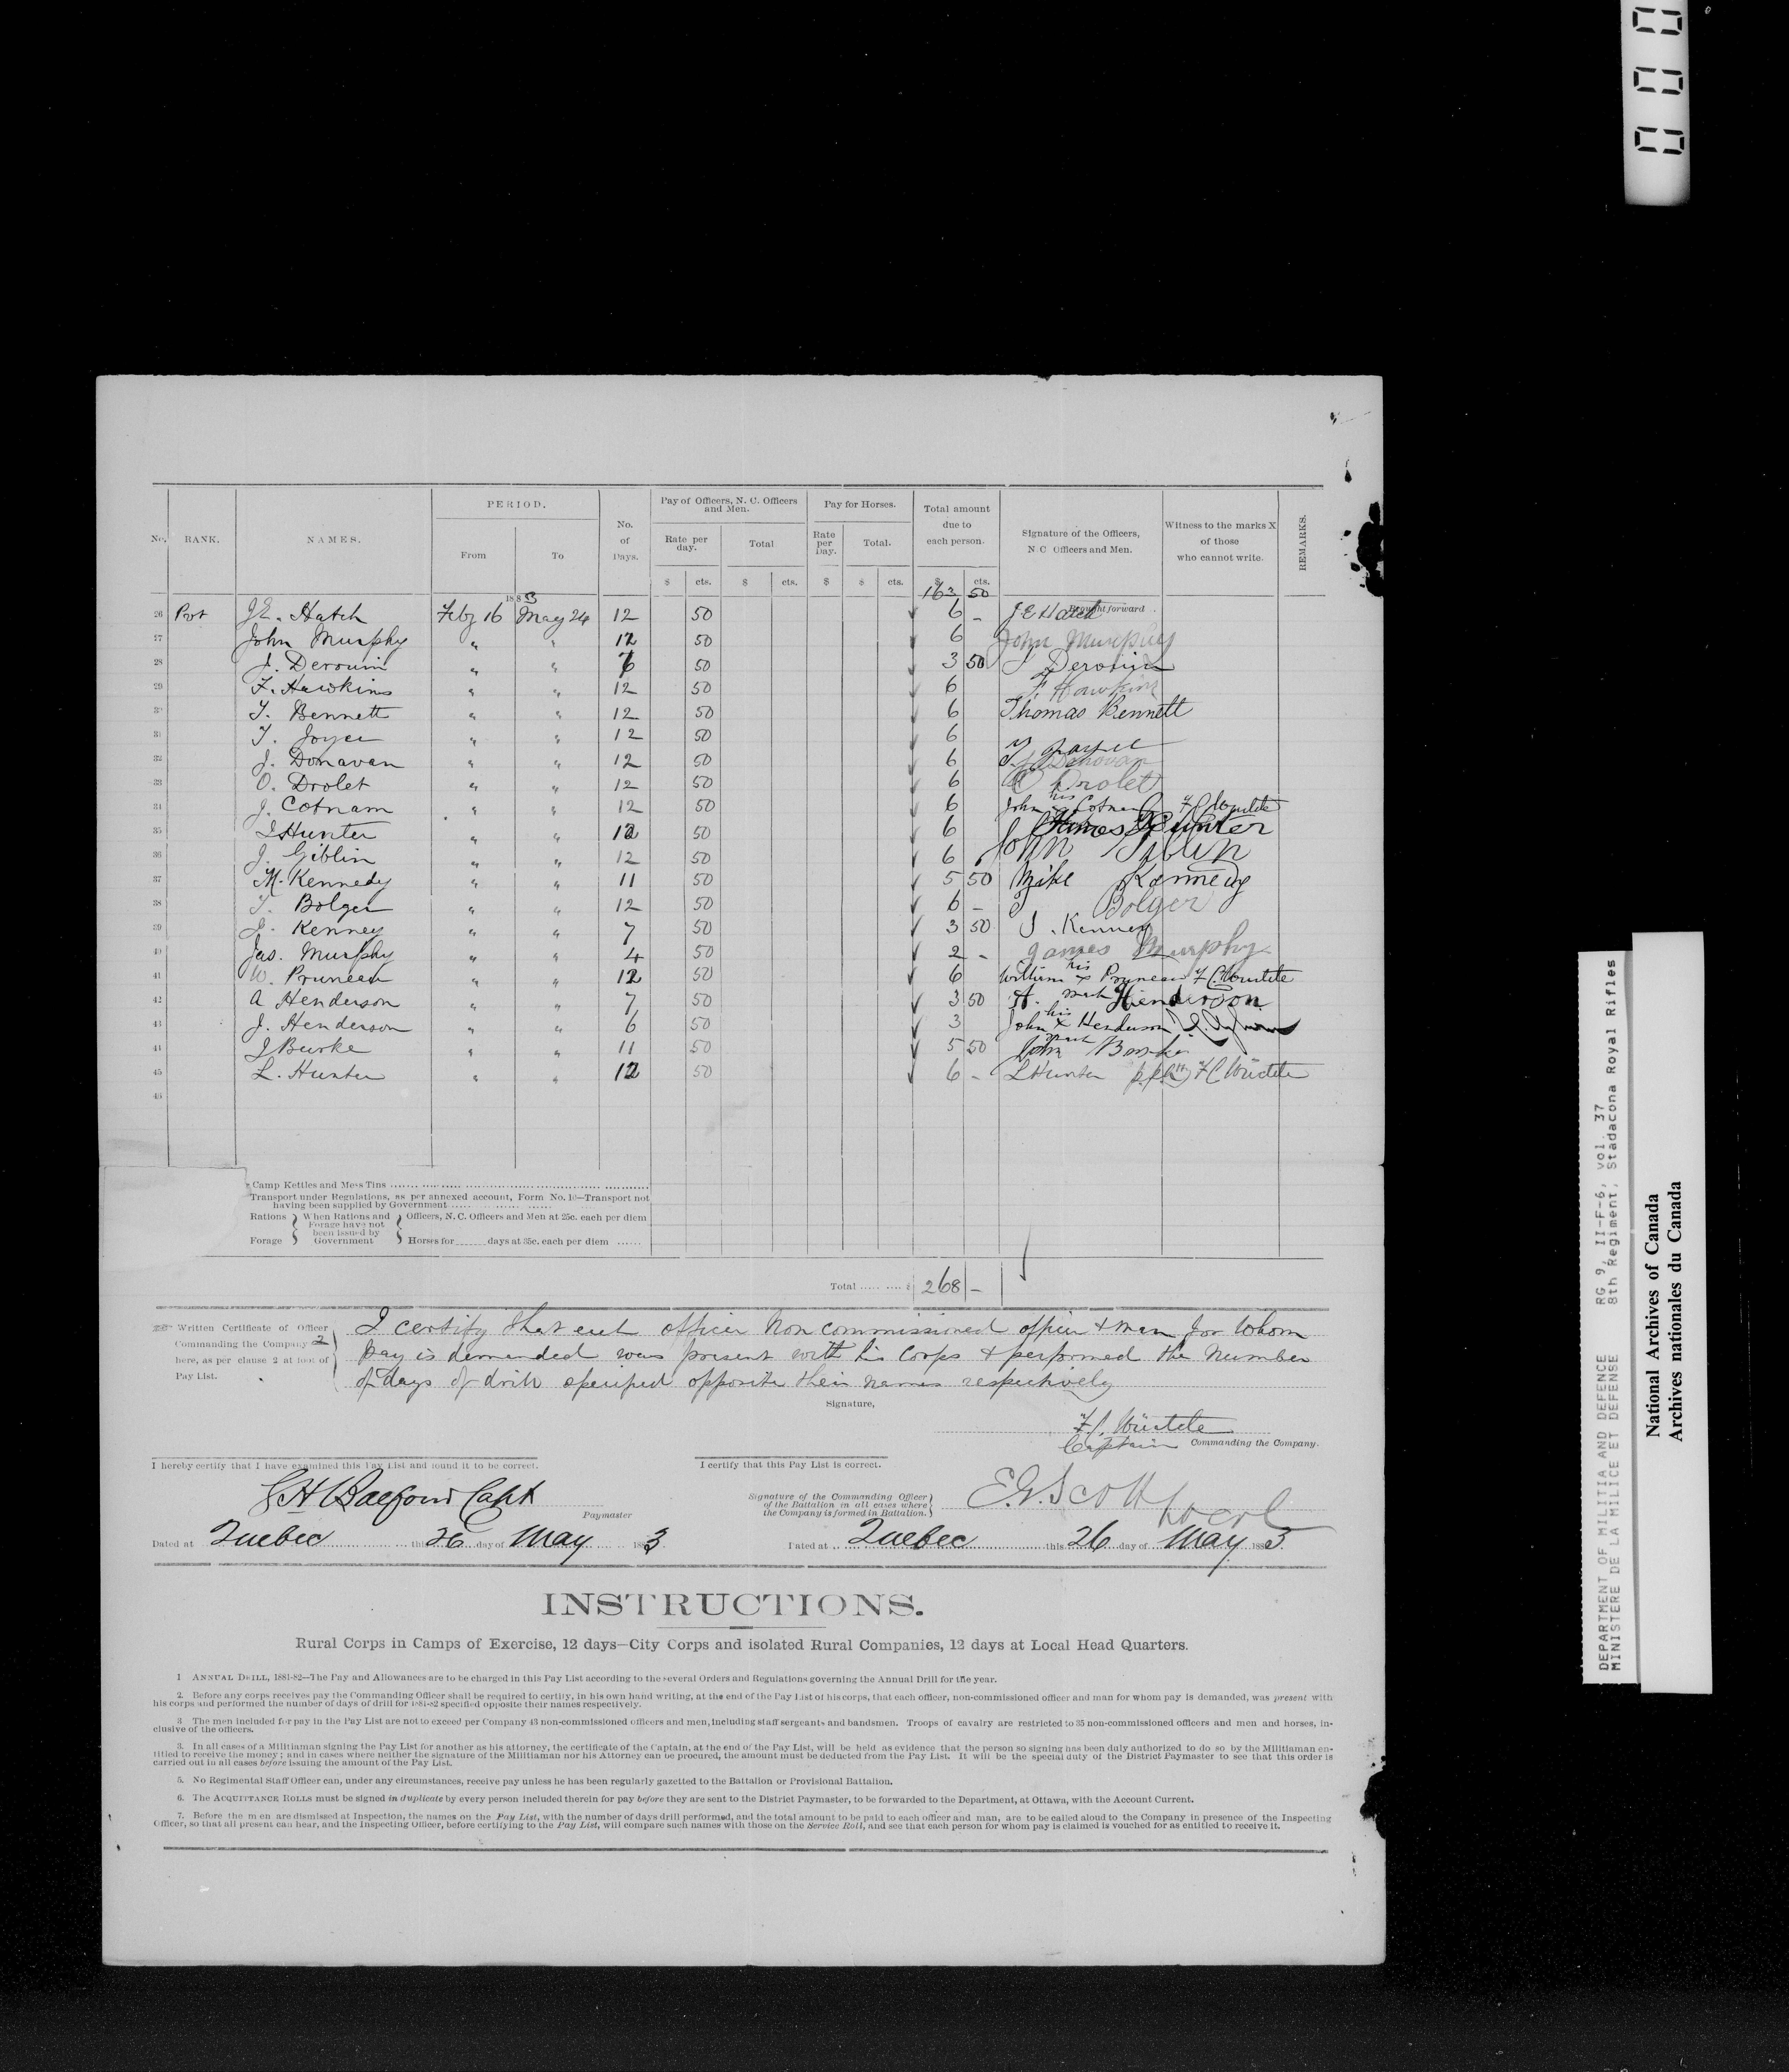 No. RANK. NAMES. PERIOD. From To No. of Days. Pay of Officers, N. C. Officers and Men. Rate per day. Total Pay for Horses. Rate per Day. Total. Total amount due to each person. Signature of the Officers, N.C Officers and Men. Witness to the marks X of those who cannot write. REMARKS.
$ cts. $ cts. $ $ cts. $ cts.
1883 163 50 Brought forward
26 Pvt J.E. Hatch Feby 16 May 24 12 50 6 - J E Hatch
27 John Murphy " " 12 50 6 John Murphy
28 J. Derouin " " 7 50 3 50 J Derouin
29 F. Hawkins " " 12 50 6 F. Hawkins
30 T. Bennett " " 12 50 6 Thomas Bennett
31 T. Joyce " " 12 50 6
32 J. Donavan " " 12 50 6 Donovan
33 O. Drolet " " 12 50 6 O Drolet
34 J. Cotnam " " 12 50 6 John his Cotnam F C Würtele
35 J Hunter " " 12 50 6 James Hunter
36 J. Giblin " " 12 50 6 John Giblin
37 M. Kennedy " " 11 50 5 50 Mike Kennedy
38 T. Bolger " " 12 50 6 - T Bolger
39 J. Kenney " " 7 50 3 50 J. Kenney
40 Jas. Murphy " " 4 50 2 - James Murphy
41 W. Pruneau " " 12 50 6 William his x mark Pruneau F C Würtele
42 A Henderson " " 7 50 3 50 A. Henderson
43 J. Henderson " " 6 50 3 John his x mark Henderson
44 J Burke " " 11 50 5 50 John Burke
45 L. Hunter " " 12 50 6 - L Hunter F C Würtele
46
Camp Kettles and Mess Tins
Transport under Regulations, as per annexed account, Form No. 10—Transport not
having been supplied by Government
Rations Forage } When Rations and Forage have not been issued by Government { Officers, N. C. Officers and Men at 25c. each per diem
Horses for days at 35c. each per diem
Total $ 268 -
Written Certificate of Officer
Commanding the Company 2
here, as per clause 2 at foot of
Pay List.
I certify that each officer Non commissioned officer & man for whom
pay is demanded was present with his Corps & performed the number
of days of drill specified opposite their names respectively
Signature,
F C Würtele
Captain Commanding the Company.
I hereby certify that I have examined this Pay List and found it to be correct.
I certify that this Pay List is correct.
Balfour Capt
Paymaster
Signature of the Commanding Officer
of the Battalion in all cases where
the Company is formed in Battalion.
E.G. Scott
Dated at Quebec this 26 day of May 1883
Dated at Quebec this 26 day of May 1883
INSTRUCTIONS.
Rural Corps in Camps of Exercise, 12 days—City Corps and isolated Rural Companies, 12 days at Local Head Quarters.
1 ANNUAL DRILL, 1881-82—The Pay and Allowances are to be charged in this Pay List according to the several Orders and Regulations governing the Annual Drill for the year.
2. Before any corps receives pay the Commanding Officer shall be required to certify, in his own hand writing, at the end of the Pay List of his corps, that each officer, non-commissioned officer and man for whom pay is demanded, was present with
his corps and performed the number of days of drill for 1881-82 specified opposite their names respectively.
3 The men included for pay in the Pay List are not to exceed per Company 43 non-commissioned officers and men, including staff sergeants and bandsmen. Troops of cavalry are restricted to 35 non-commissioned officers and men and horses, in-
clusive of the officers.
3. In all cases of a Militiaman signing the Pay List for another as his attorney, the certificate of the Captain, at the end of the Pay List, will be held as evidence that the person so signing has been duly authorized to do so by the Militiaman en-
titled to receive the money; and in cases where neither the signature of the Militiaman nor his Attorney can be procured, the amount must be deducted from the Pay List. It will be the special duty of the District Paymaster to see that this order is
carried out in all cases before issuing the amount of the Pay List.
5. No Regimental Staff Officer can, under any circumstances, receive pay unless he has been regularly gazetted to the Battalion or Provisional Battalion.
6. The ACQUITTANCE ROLLS must be signed in duplicate by every person included therein for pay before they are sent to the District Paymaster, to be forwarded to the Department, at Ottawa, with the Account Current.
7. Before the men are dismissed at Inspection, the names on the Pay List, with the number of days drill performed, and the total amount to be paid to each officer and man, are to be called aloud to the Company in presence of the Inspecting
Officer, so that all present can hear, and the Inspecting Officer, before certifying to the Pay List, will compare such names with those on the Service Roll, and see that each person for whom pay is claimed is vouched for as entitled to receive it.
DEPARTMENT OF MILITIA AND DEFENCE RG 9, II-F-6, vol. 37
MINISTERE DE LA MILICE ET DEFENSE 8th Regiment, Stadacona Royal Rifles
National Archives of Canada
Archives nationales du Canada
000